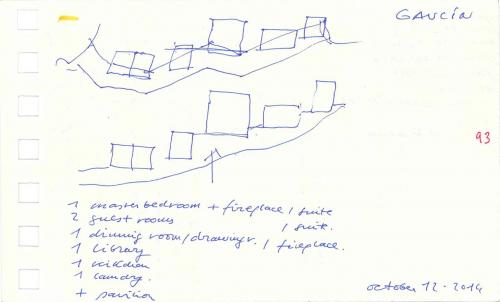 GAUCÍN
93
1 master bedroom + fireplace / suite
2 guest rooms / suite.
1 dinning room/drawing r. / fireplace.
1 library
1 kitchen
1 laundry.
+ pavilion
october 12 - 2014